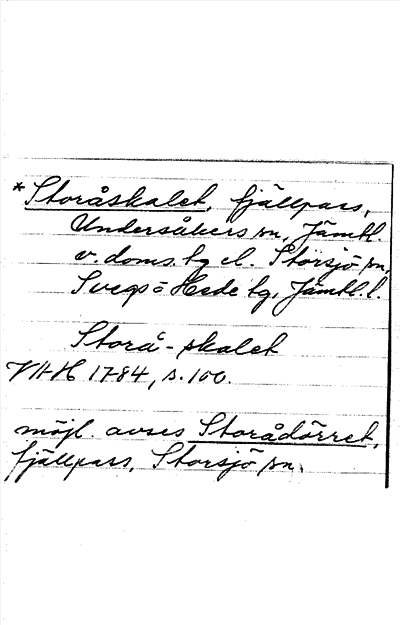 *Storåskalet, fjällpass,
Undersåkers sn, Jämtl.
v. doms. tg el. Storsjö sn,
Svegs o Hede tg, Jämtl. l.
Storå-skalet
VHH 1784, s. 100.
möjl. avses Storådörret,
fjällpass, Storsjö sn.